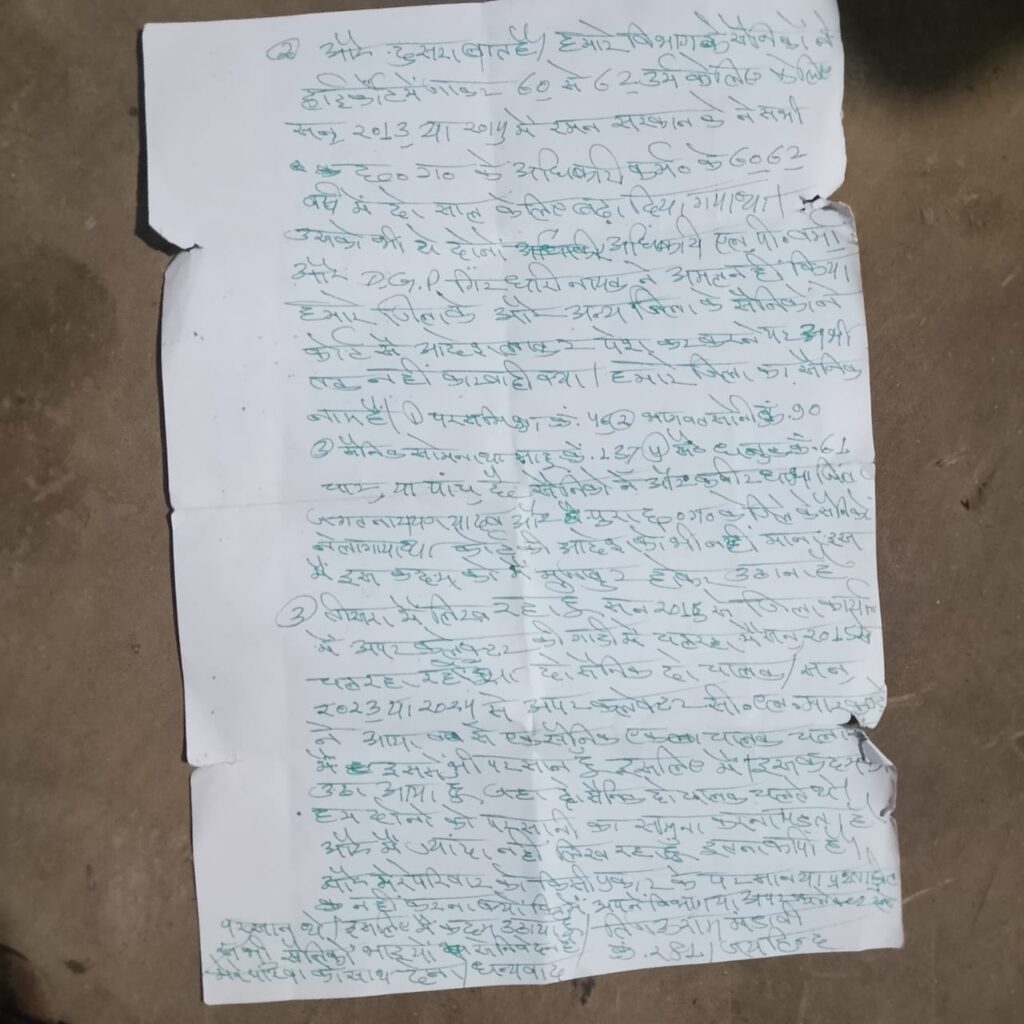 ② और दुसरा बात है। हमारे विभाग के सैनिकों ने
हाईकोर्ट में जाकर 60 से 62 उर्म के लिए के लिए
सन् 2013 या 2014 में रमन सरकार के ने सभी
छ०ग० के अधिकारी कर्म० के 60 62
वर्ष में दो साल के लिए बढ़ा दिया गया था।
उसको भी ये दोनों अधिकारी एल. पी. वर्मा
और D.G.P. गिरधारी नायक ने अमल नहीं किया।
हमारे जिला के और अन्य जिला के सैनिकों ने
कोर्ट से आदेश लाकर पेश कर करने पर अभी
तक नहीं कारवाही क्या। हमारे जिला का सैनिक
नाम है। ① क्रं. 45 ② भगवत सोनी क्रं. 90
③ सैनिक सोमनाथ साहू क्रं. 137 ④ क्रं. 61
चार, या पांच, सैनिकों ने और कबीरधाम जिला
जगतनारायण यादव और पुरा छ०ग० के जिले के सैनिकों
ने लागया था कोर्ट की आदेश को भी नहीं माना इस
में इस कदम को मैं मजबूर होकर उठाना है
③ तिसरा में लिख रहा हूँ सन 2015 से जिला कार्यालय
में अपर कलेक्टर की गाड़ी में चल रहा मैं सन् 2015 से
चल रहा दो सैनिक दो चालक। सन्
2023 या 2024 से अपर कलेक्टर सी. एल. मारकण्डे
ने आया जब से एक सैनिक एक चालक चला
में इसमें भी परसान है इसलिए मैं इस कदम को
उठा आया हूँ जहां दो सैनिक दो चालक चलते थे।
हम दोनों को परसानी का सामना करना पड़ता है।
और मैं ज्यादा नहीं लिख रहा हूँ इतना काफी है।
और मेरे परिवार को किसी प्रकार के परसान या
नहीं करना क्यों कि मैं अपने विभाग या अपर कलेक्टर से
परसान थे। इसलिए मैं कदम उठाया हूँ।
सभी सैनिकों भाइयों से निवेदन है क्रं. 281। जयहिन्द
मेरे परिवार को साथ देना। धन्यवाद